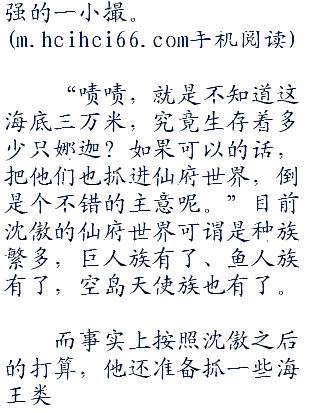 强的一小撮。
(m.hcihci66.com手机阅读)
“啧啧，就是不知道这
海底三万米，究竟生存着多
少只娜迦？如果可以的话，
把他们也抓进仙府世界，倒
是个不错的主意呢。”目前
沈傲的仙府世界可谓是种族
繁多，巨人族有了、鱼人族
有了，空岛天使族也有了。
而事实上按照沈傲之后
的打算，他还准备抓一些海
王类